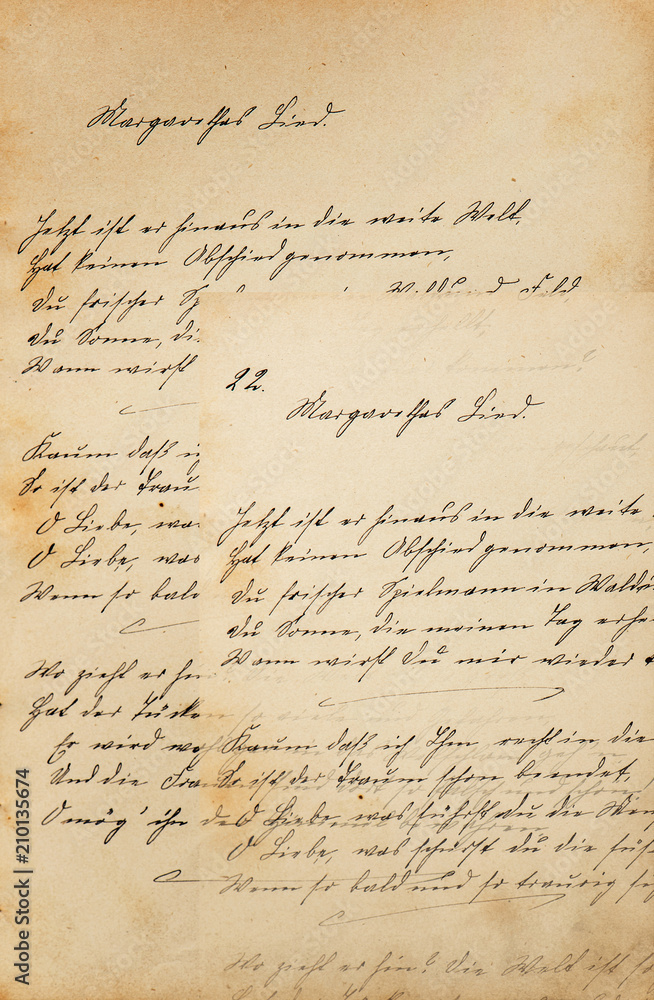 Margarethas Lied.
Jetzt ist er hinaus in die weite Welt,
Hat keinen Abschied genommen,
Du frischer
Du Sonne,
Wann wirst
Kaum daß
So ist der Trau
O Liebe, wa
O Liebe, was
Wenn so bald
Wo zieht er
Hat der Tücken
Er wird
Und die
O mög' ihn
22.
Margarethas Lied.
Jetzt ist er hinaus in die weite
Hat keinen Abschied genommen,
Du frischer Spielmann in Wald
Du Sonne, die meinen Tag erhe
Wann wirst Du mir wieder
Kaum daß ich Ihm recht in die
So ist der Traum schon beendet,
O Liebe, was führst du die
O Liebe, was schürst du die süß
Wenn so bald und so traurig
Wo zieht er hin? Die Welt ist so
Adobe Stock | #210135674